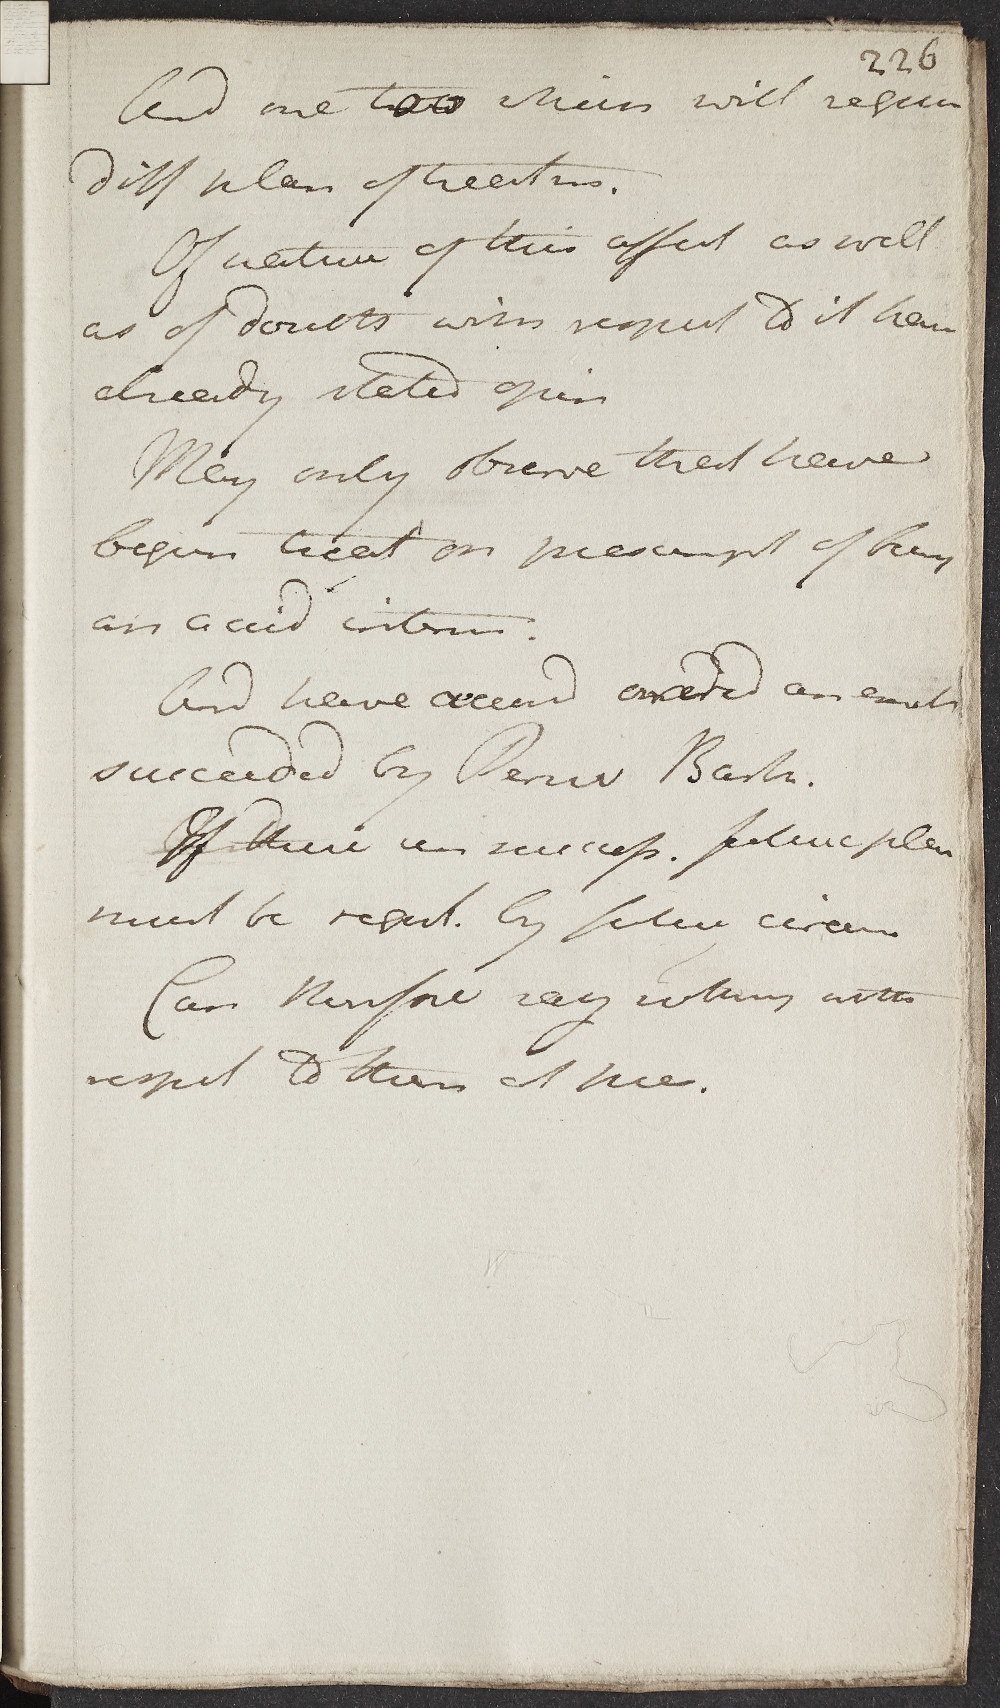 226
And one too which will requir
diff plan of treatm.
Of nature of this affect as well
as of doubts with respect to it have
already stated opin
May only observe that have
begun treat on presumpt of being
an acrid intern.
And have accord ordered an emet
succeeded by Peruv Bark.
If these un success. future plan
must be regul. by future circum
Can therefore say nothing with
respect to them at pre.